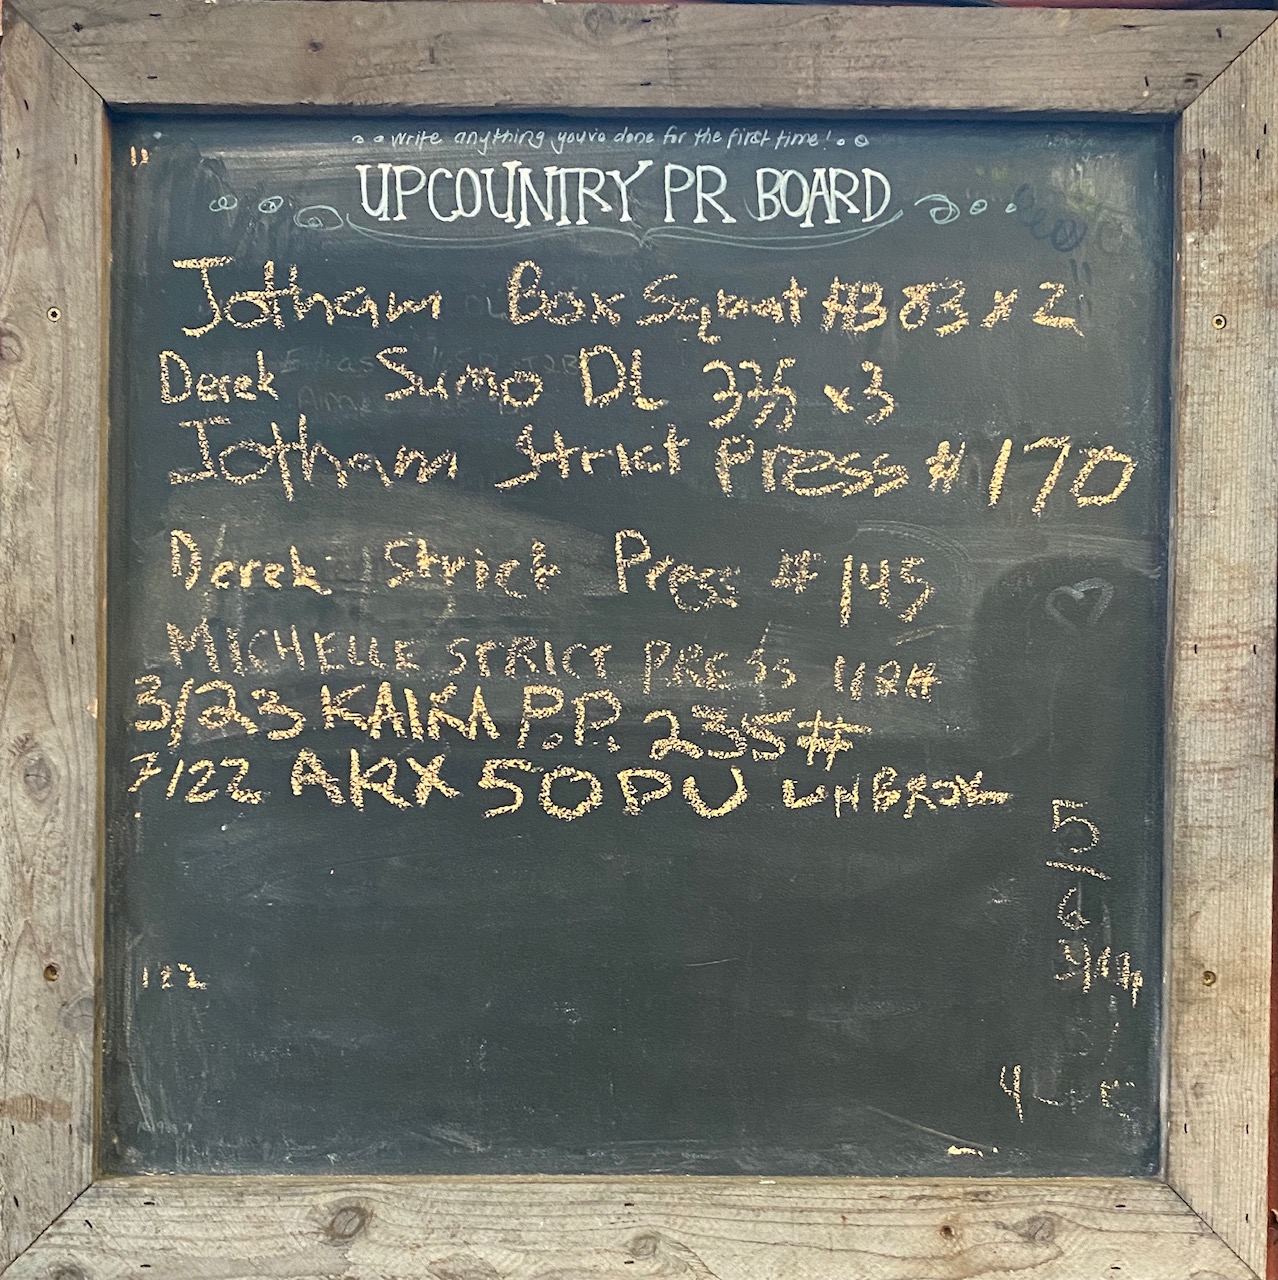 write anything you've done for the first time!
UPCOUNTRY PR BOARD
Jotham Box Squat #383 x 2
Derek Sumo DL 335 x3
Jotham Strict Press #170
Derek Strict Press #145
MICHELLE STRICT PRESS 112#
3/23 KAIKA P.P. 235#
7/22 AKX 50 PU UNBROK
5